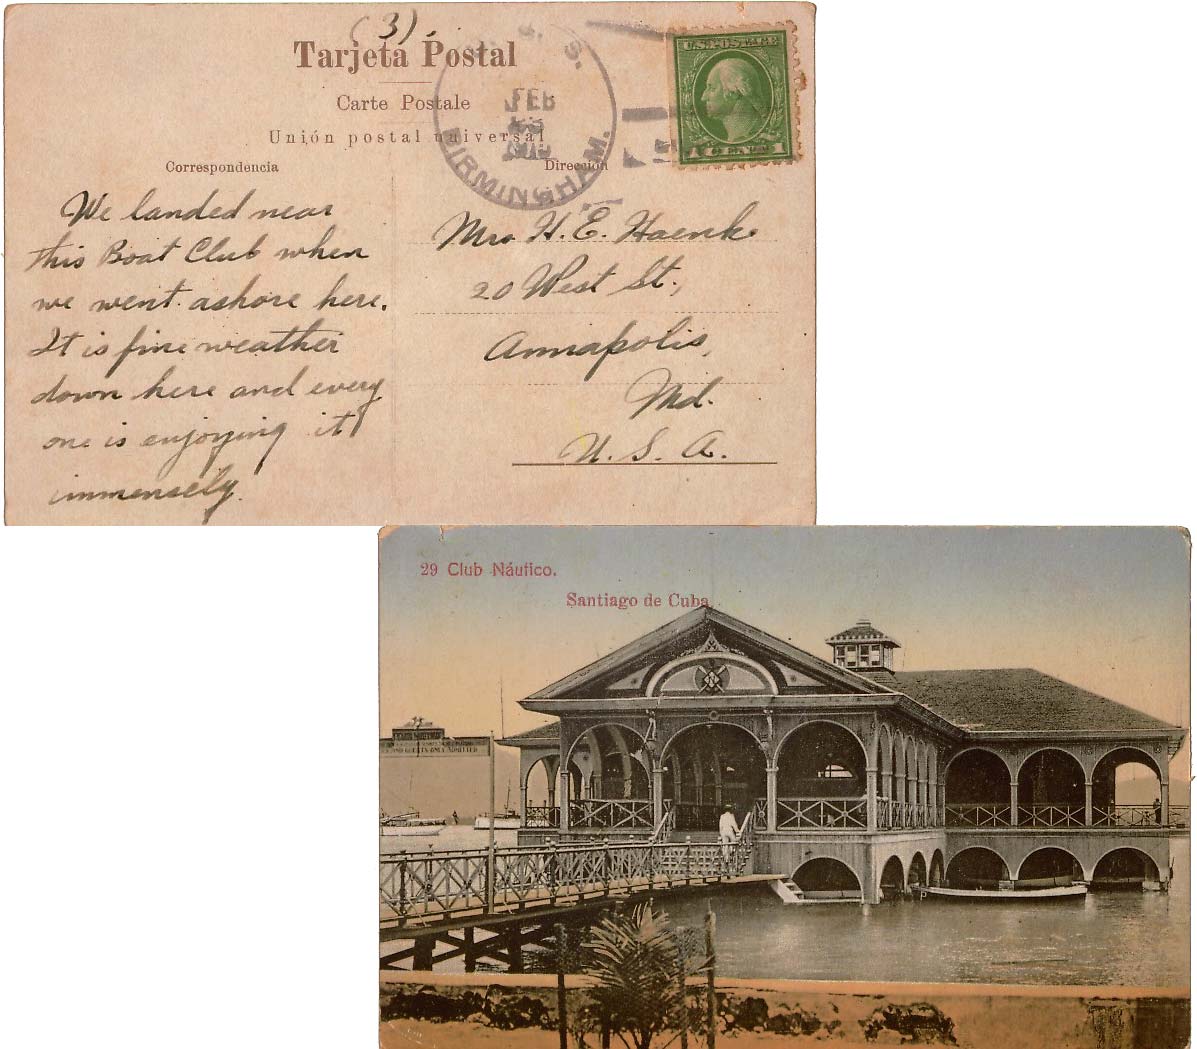 (3)
Tarjeta Postal
Carte Postale
Unión postal universal
Correspondencia
Dirección
S. S.
FEB
BIRMINGHAM.
U.S. POSTAGE
1 CENT 1
We landed near
this Boat Club when
we went ashore here.
It is fine weather
down here and every
one is enjoying it
immensely.
Mrs H. E. Haenke
20 West St.,
Annapolis,
Md.
U. S. A.
29 Club Náutico.
Santiago de Cuba
CLUB NAUTICO
ONLY ADMITTED